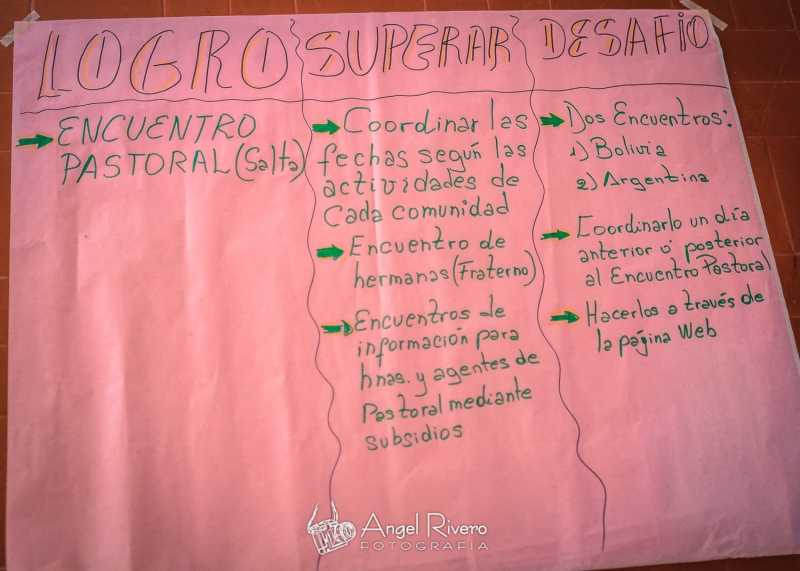 LOGRO
ENCUENTRO
PASTORAL (Salta)
SUPERAR
Coordinar las
fechas según las
actividades de
Cada comunidad
Encuentro de
hermanas (Fraterno)
Encuentros de
información para
hnas. y agentes de
Pastoral mediante
subsidios
DESAFIO
Dos Encuentros:
1) Bolivia
2) Argentina
Coordinarlo un día
anterior ó posterior
al Encuentro Pastoral
Hacerlos a través de
la página Web
Angel Rivero
FOTOGRAFIA